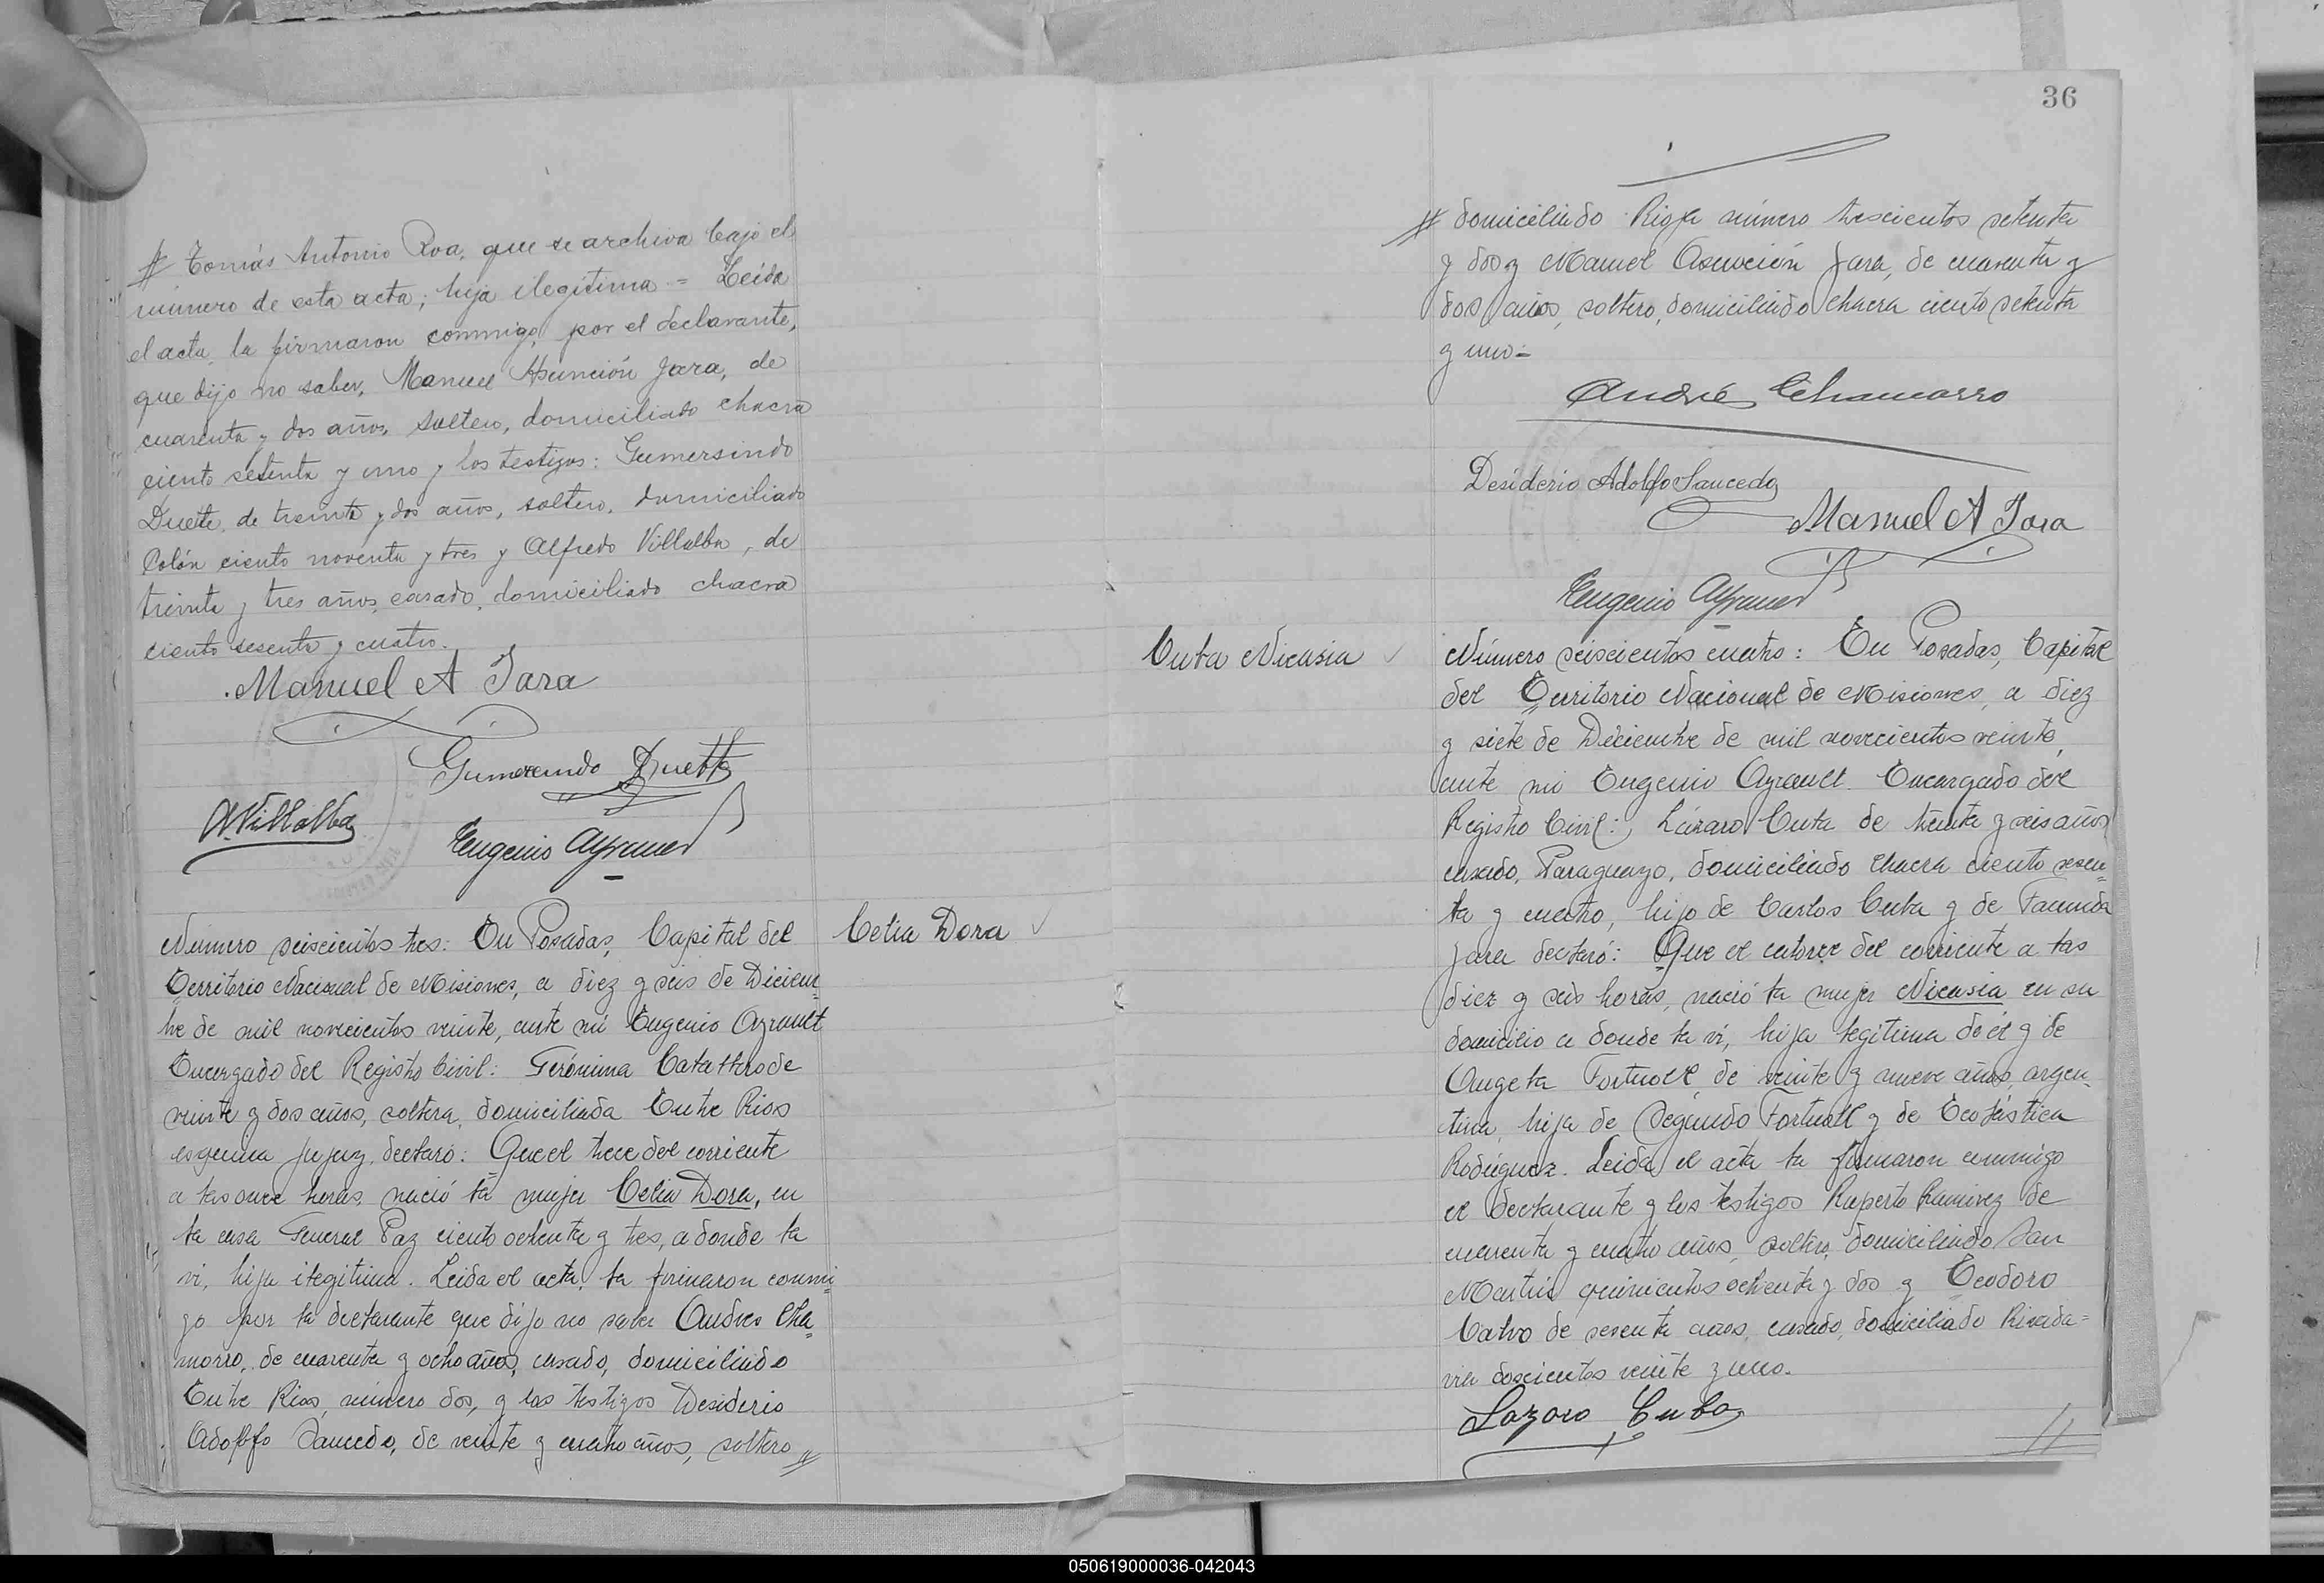 # Tomás Antonio Roa, que se archiva bajo el
número de esta acta; hija ilegítima = Leida
el acta, la firmaron conmigo, por el declarante,
que dijo no saber, Manuel Asunción Jara, de
cuarenta y dos años, soltero, domiciliado chacra
ciento setenta y uno y los testigos: Gumersindo
Duette, de treinta y dos años, soltero, domiciliado
Colón ciento noventa y tres y Alfredo Villalba, de
treinta y tres años, casado, domiciliado chacra
ciento sesenta y cuatro.
Manuel A Jara
Gumersindo Duette
A. Villalba
Eugenio Ayrault
Celia Dora
Número seiscientos tres: En Posadas, Capital del
Territorio Nacional de Misiones, a diez y seis de Diciem=
bre de mil novecientos veinte, ante mí Eugenio Ayrault
Encargado del Registro Civil: Gerónima de
veinte y dos años, soltera, domiciliada Entre Rios
esquina Jujuy, declaró: Que el trece del corriente
a las once horas, nació la mujer Celia Dora, en
la casa General Paz ciento ochenta y tres, a donde la
ví, hija ilegitima. Leida el acta, la firmaron conmi=
go por la declarante que dijo no saber Andres Cha=
morro, de cuarenta y ocho años, casado, domiciliado
Entre Rios, número dos, y los testigos Desiderio
Adolfo Saucedo, de veinte y cuatro años, soltero //
36
# domiciliado Rioja número trescientos setenta
y dos y Manuel Asunción Jara, de cuarenta y
dos años, soltero, domiciliado chacra ciento setenta
y uno=
Andrés Chamorro
Desiderio Adolfo Saucedo
Manuel A Jara
Eugenio Ayrault
Cuba Nicasia
Número seiscientos cuatro: En Posadas, Capital
del Territorio Nacional de Misiones, a diez
y siete de Diciembre de mil novecientos veinte,
ante mi Eugenio Ayrault Encargado del
Registro Civil: Lázaro Cuba de treinta y seis años
casado, Paraguayo, domiciliado chacra ciento sesen=
ta y cuatro, hijo de Carlos Cuba y de Facunda
Jara declaró: Que el catorce del corriente a las
diez y seis horas, nació la mujer Nicasia en su
domicilio a donde la ví, hija legítima de él y de
Angela de veinte y nueve años, argen=
tina, hija de Segundo y de Escolástica
Rodriguez. Leida el acta la firmaron conmigo
el declarante y los testigos Ruperto Ramirez de
cuarenta y cuatro años, soltero, domiciliado San
Martín quinientos ochenta y dos y Teodoro
Calvo de sesenta años, casado, domiciliado Rivada=
via doscientos veinte y uno.
Lazaro Cuba
//
050619000036-042043